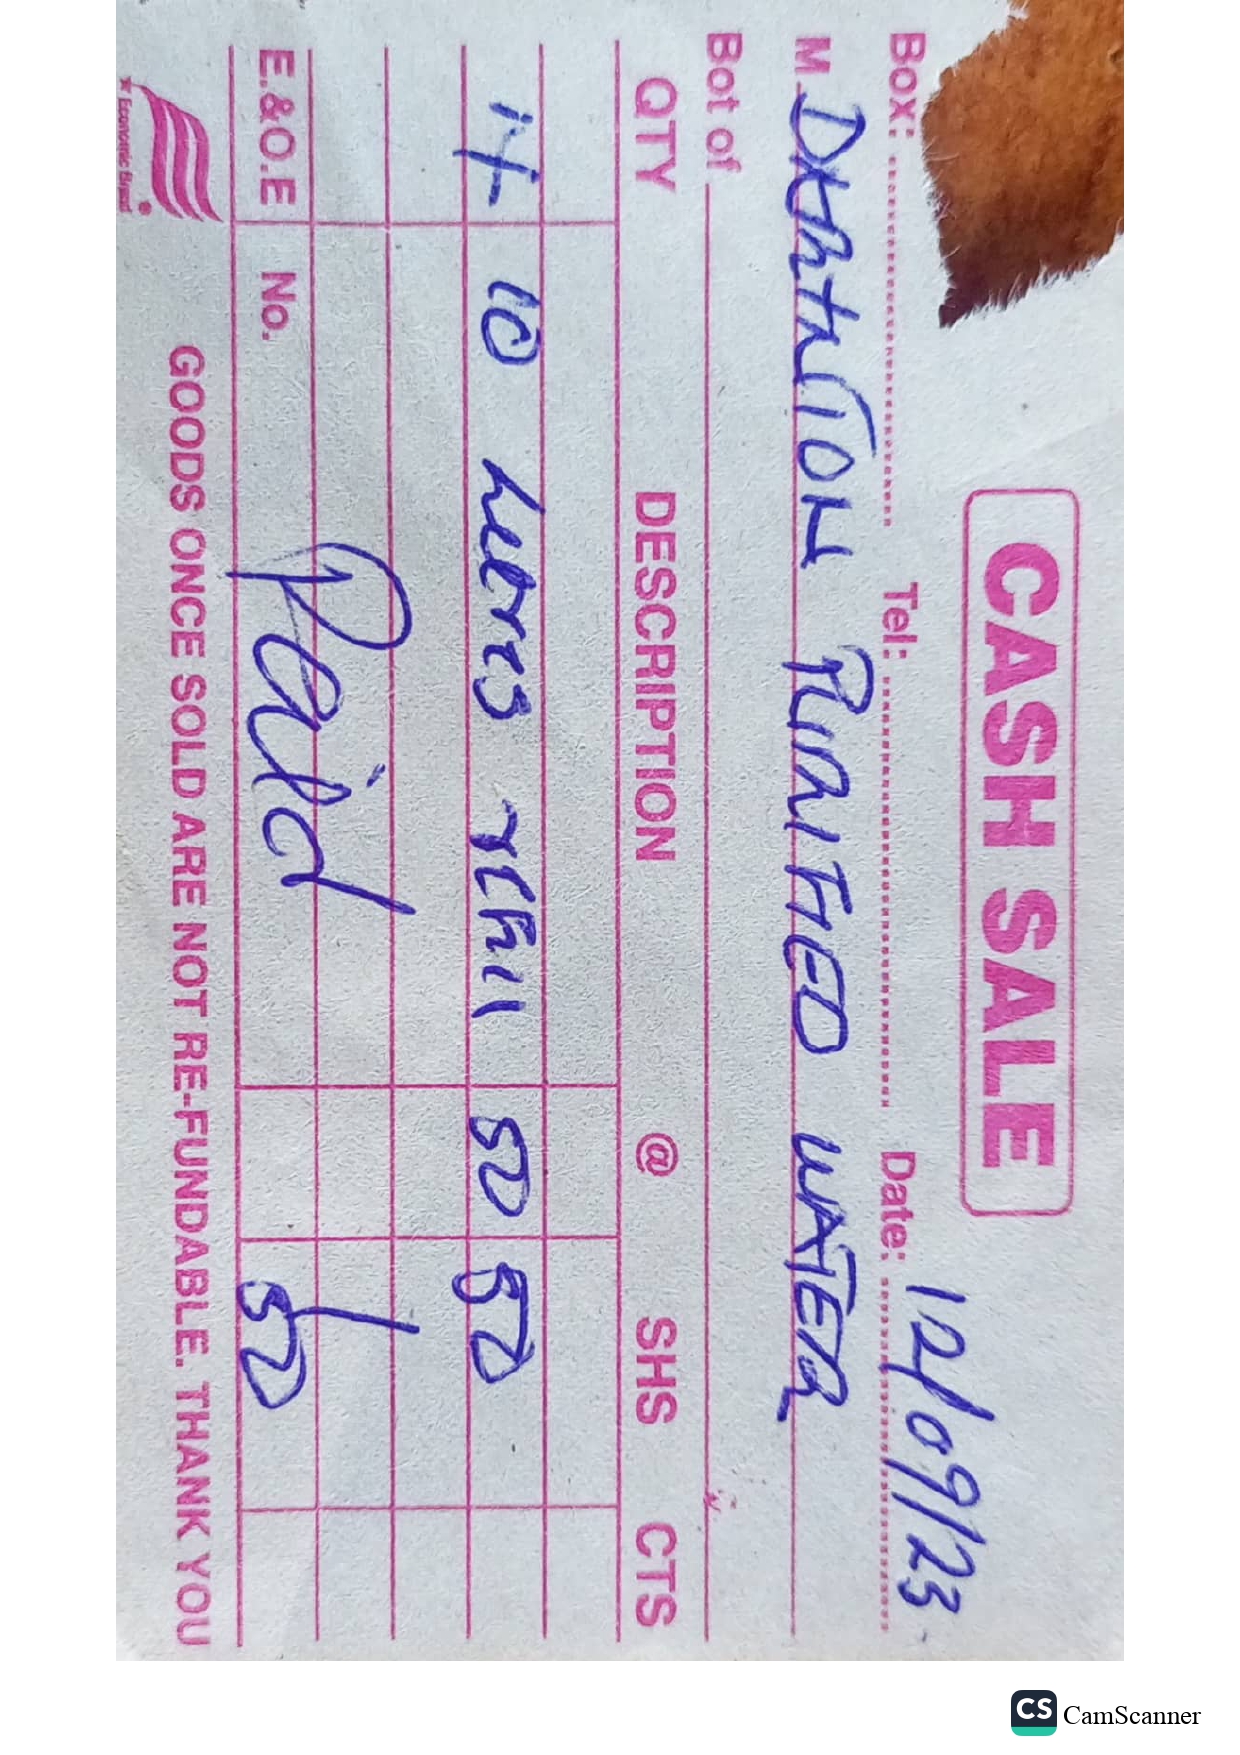 CASH SALE
Box: Tel: Date: 12/09/23
M PURIFIED WATER
Bot of
QTY DESCRIPTION @ SHS CTS
10 Litres refill 50 50
Paid
E.&O.E No. 50
GOODS ONCE SOLD ARE NOT RE-FUNDABLE. THANK YOU
Economic Brand
CS CamScanner